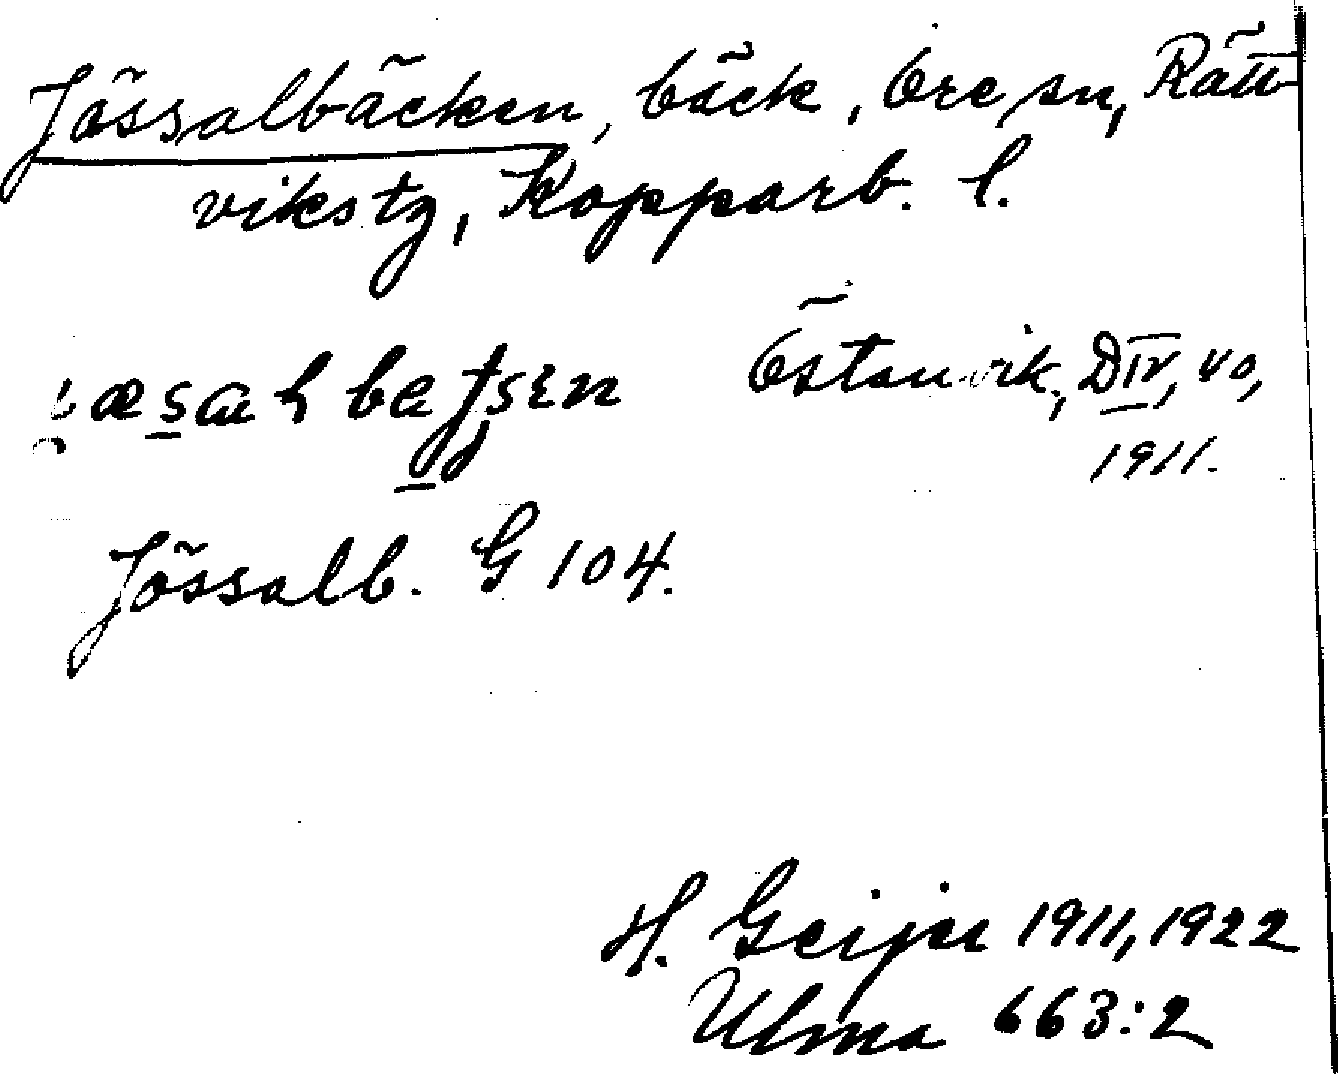 Jössalbäcken, bäck, Ore sn, Rätt-
vikstg, Kopparb. l.
Östanvik, DIV, uo,
1911.
Jössalb. G 104.
H. Geijer 1911, 1922
Ulma 663:2